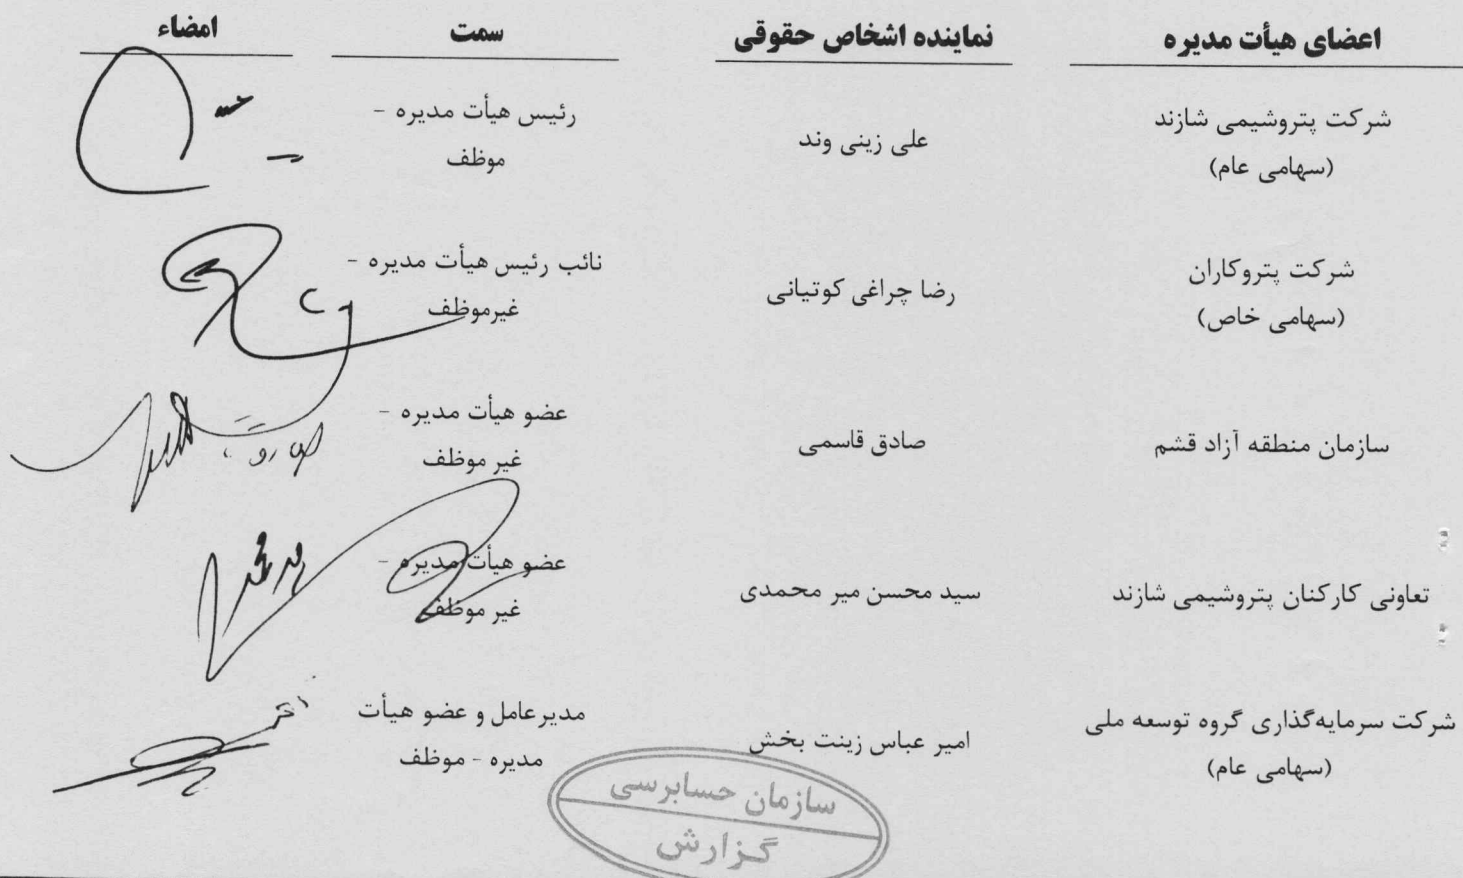 اعضای هیأت مدیره	نماینده اشخاص حقوقی	سمت	امضاء
شرکت پتروشیمی شازند	علی زینی وند	رئیس هیأت مدیره -
(سهامی عام)	موظف
شرکت پتروکاران	رضا چراغی کوتیانی	نائب رئیس هیأت مدیره -
(سهامی خاص)	غیرموظف
سازمان منطقه آزاد قشم	صادق قاسمی	عضو هیأت مدیره -
غیر موظف
تعاونی کارکنان پتروشیمی شازند	سید محسن میر محمدی	عضو هیأت مدیره -
غیر موظف
شرکت سرمایه‌گذاری گروه توسعه ملی	امیر عباس زینت بخش	مدیرعامل و عضو هیأت
(سهامی عام)	مدیره - موظف
سازمان حسابرسی
گزارش